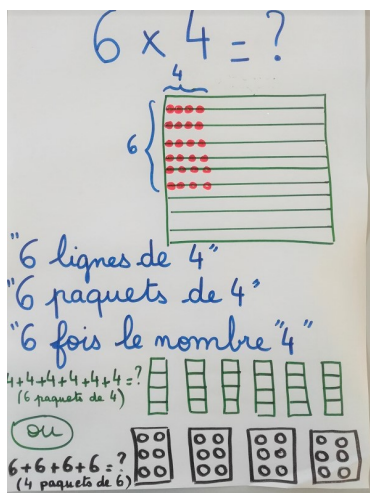 6 x 4 = ?
4
6
"6 lignes de 4"
"6 paquets de 4"
"6 fois le nombre "4"
4+4+4+4+4+4 = ?
(6 paquets de 4)
ou
6+6+6+6 = ?
(4 paquets de 6)